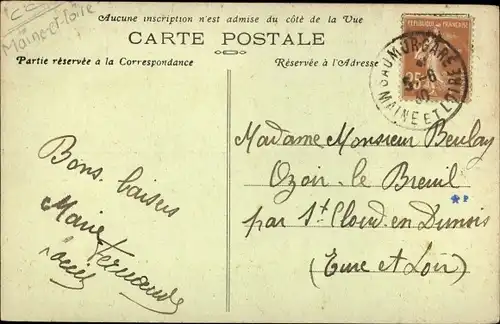 Maine-et-Loire
Aucune inscription n'est admise du côté de la Vue
CARTE POSTALE
Partie réservée à la Correspondance
Réservée à l'Adresse
REPUBLIQUE FRANÇAISE
SAUMUR GARE
MAINE ET LOIRE
25
Bons baisers
Marie Fernande
Madame Monsieur Beulay
Ozoir-le Breuil
par St Cloud en Dunois
(Eure et Loir)